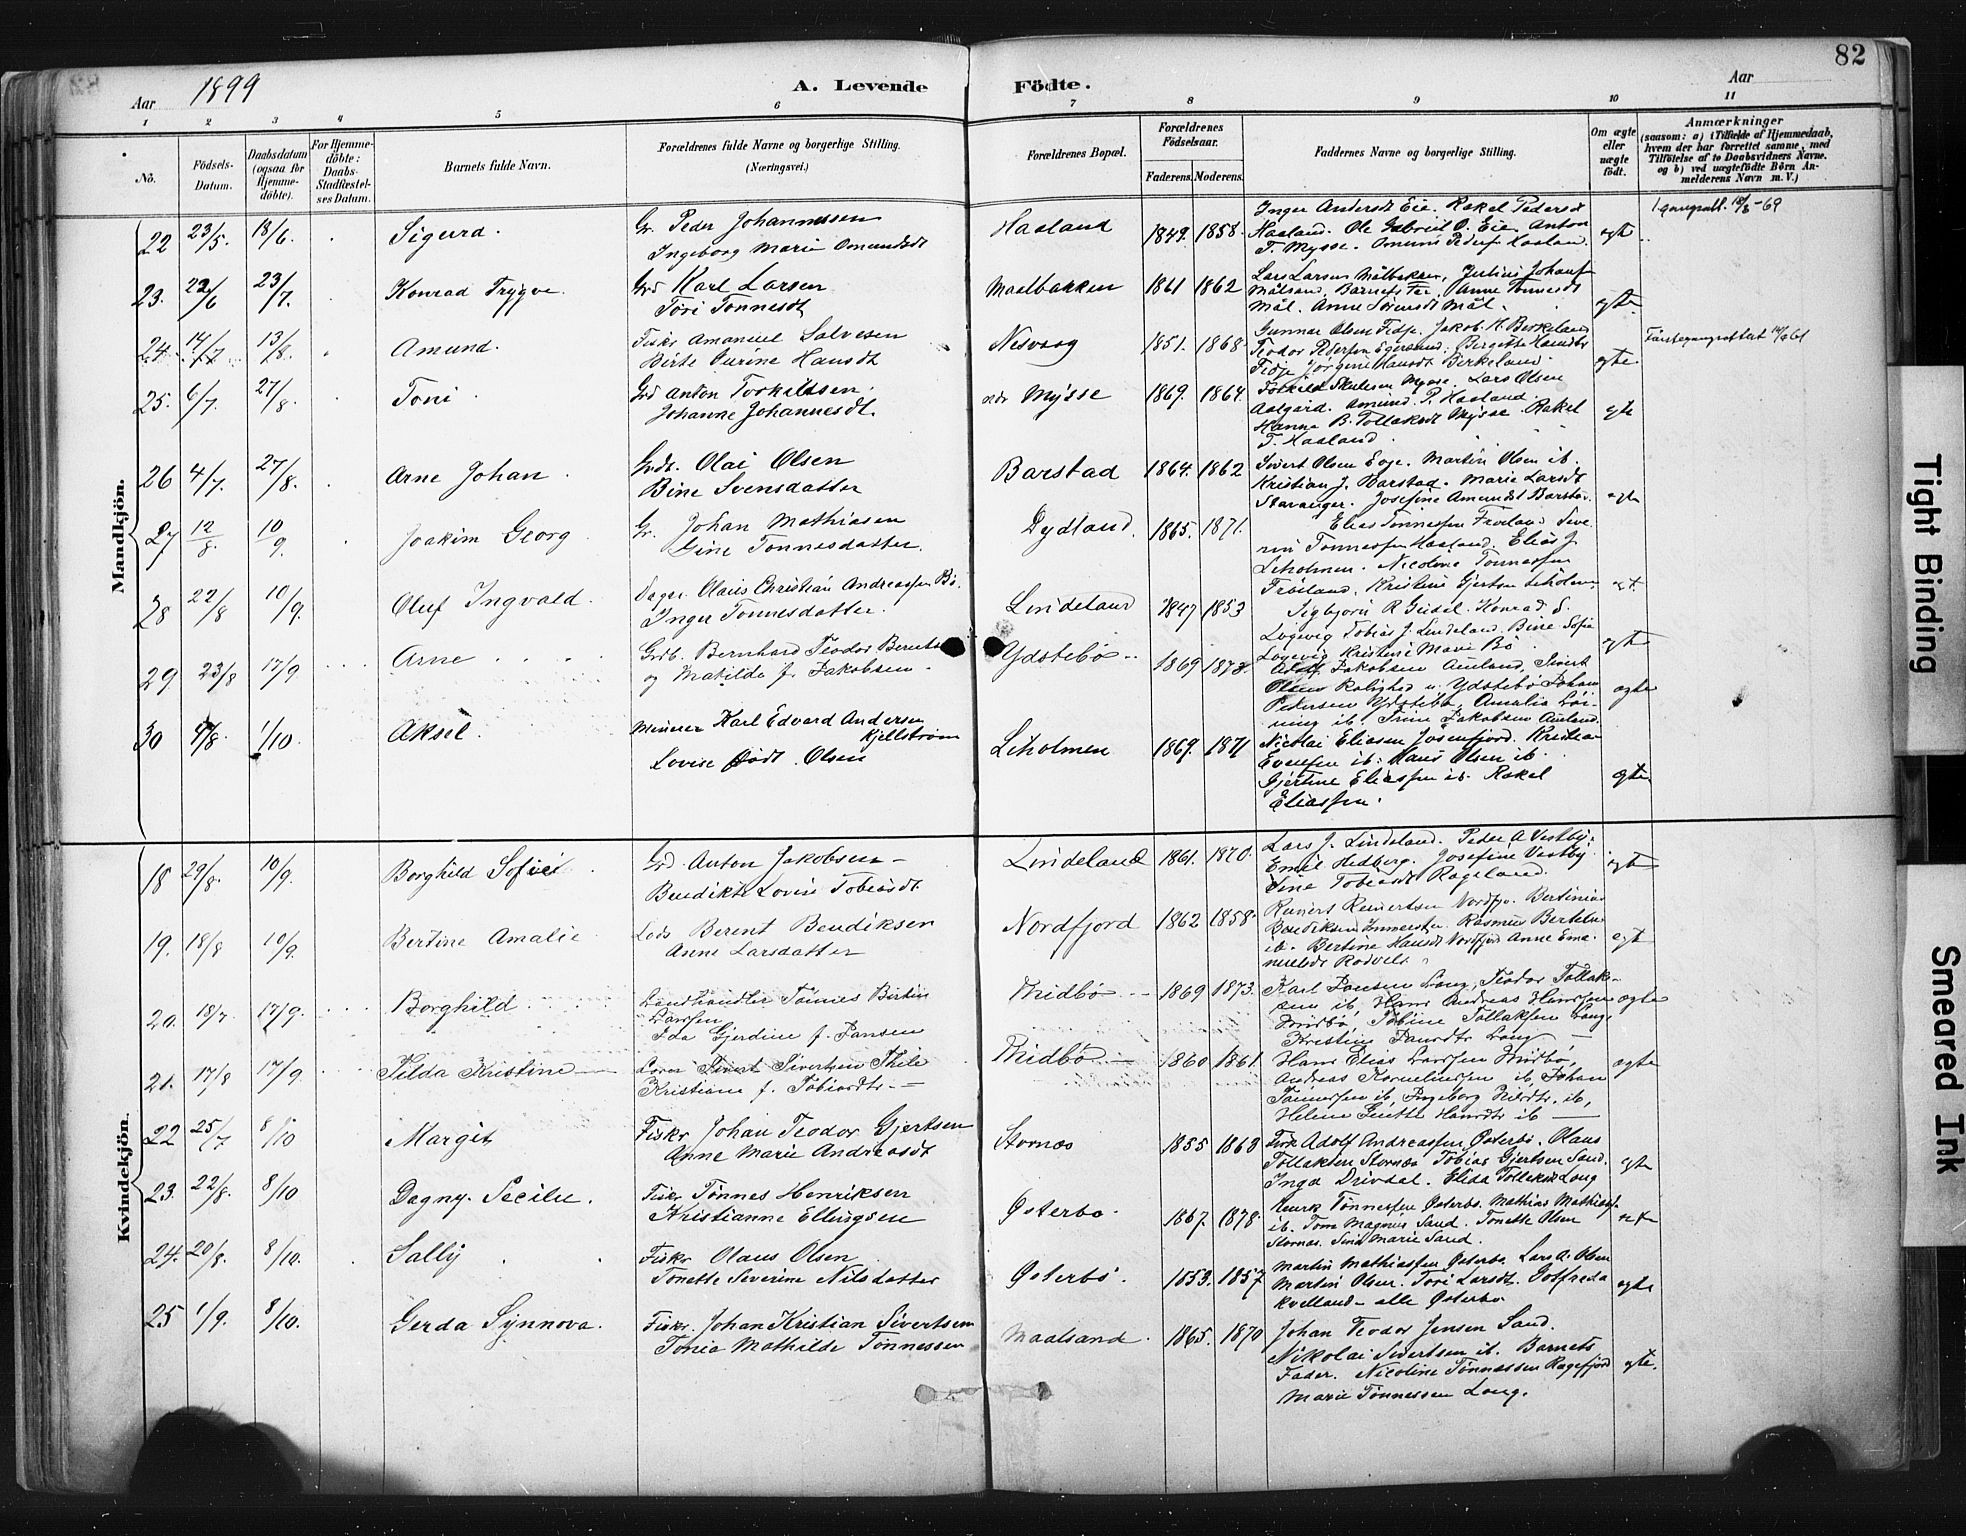 82
Aar 1899
A. Levende Födte.
Aar
1 2 3 4 5 6 7 8 9 10 11
No.
Födsels-Datum.
Daabsdatum (ogsaa for Hjemme-döbte).
For Hjemme-döbte: Daabs-Stadfæstel-ses Datum.
Barnets fulde Navn.
Forældrenes fulde Navne og borgerlige Stilling. (Næringsvei.)
Forældrenes Bopæl.
Forældrenes Födselsaar.
Faderens. Moderens.
Faddernes Navne og borgerlige Stilling.
Om ægte eller uægte födt.
Anmærkninger
(saasom: a) i Tilfælde af Hjemmedaab, hvem der har forrettet samme, med Tilföielse af to Daabsvidners Navne. og b) ved uægtefödte Börn An-melderens Navn m. V.)
Mandkjön.
22 23/5. 18/6. Sigurd. Gr. Peder Johannessen
Ingeborg Marie Amundsdt
Haaland 1849. 1858.
Inger Andersdt Eie. Rakel Pedersdt
Haaland. Ole Gabriel O. Eie. Anton
T. Mysse. Amund Peders. Haaland
egte
23. 22/6 23/7. Konrad Trygve. Grd Karl Larsen
Tori Tönnesdt
Maalbakken 1861 1862
Lars Larsen Målbakken, Julius Johans.
Målsand. Barnets Far. Anne Tönnesdt
Mål. Anne Sörensdt Mål.
egte.
24. 14/7 13/8. Amund. Fiskr Amanuel Salvesen
Birte Gurine Hansdt
Nesvaag 1851. 1868
Gunnar Olsen Fidje. Jakob H. Berkeland
Teodor Pedersen Egersund. Bergitte Hansdtr
Fidje Jörgine Hansdt Birkeland
egte.
25. 6/7. 27/8. Toni. Grd Anton Torkildsen.
Johanne Johannesdt.
Mysse 1869. 1864.
Torkild Skulesen Mysse. Lars Olsen
Aalgård. Amund P. Haaland.
Hanna B. Tollaksdt Mysse. Rakel
T. Haaland.
egte
26 4/7. 27/8. Arne Johan. Grdb. Olai Olsen
Bine Svensdatter
Barstad 1864. 1862
Sivert Olsen Eeg. Martin Olsen ib.
Kristian J. Barstad. Marie Larsdt
Stavanger. Josefine Amundsdt Barstad.
egte
27 12/8. 10/9. Joakim Georg Gr. Johan Mathiasen
Gine Tönnesdatter.
Dydland. 1865. 1871.
Elias Tönnessen Fröiland Seve-
rin Tönnessen Haaland. Elias J.
Liholmen. Nicoline Tönnessen
Fröiland, Kristine Gjertsen Liholmen
28 22/8 10/9. Oluf Ingvald. Dagar. Olaus Christian Andreassen Bö.
Inger Tönnesdatter.
Lindeland 1847 1853
Sigbjörn R Geisel. Konrad S.
Logevig Tobias J. Lindeland. Bine Sofie
Logevig Kristine Marie Bö.
egte
29 23/8 17/9 Arne Grdb. Bernhard Teodor Berntsen
og Matilde f. Jakobsen
Ydstebö 1869 1873.
Jakobsen Auland, Sivert
Olsen Rolighed v. Ydstebö Johan
Pedersen Ydstebö, Amalia Löi-
ning ib. Trine Jakobsen Auland.
ægte
30 4/8. 1/10. Aksel. Minerer Karl Edvard Andersen
Kjellström
Lovise födt Olsen
Liholmen 1869. 1871
Nicolai Eliasen Jösenfjord. Kristian
Evensen ib. Hans Olsen ib.
Gjertine Eliassen ib. Rakel
Eliassen.
egte
Kvindekjön.
18 29/8. 10/9. Borghild Sofie Grd. Anton Jakobsen
Bendikte Lovise Tobiasdt.
Lindeland 1861. 1870.
Lars J. Lindeland. Peder A Vestby.
Emil Hedberg. Josefine Vestby.
Sine Tobiasdt Rageland.
egte
19. 18/8 10/9. Bertine Amalie Lods Berent Bendiksen
Anne Larsdatter
Nordfjord 1862 1858.
Reinert Reinertsen Nordfjo. Bertinius
Bendiksen Immerstein Rasmus Bertelsen
ib. Bertine Hansdt Nordfjord Anne Ema-
nuelsdt Rodvelt
egte
20. 18/7 17/9. Borghild Landhandler Tönnes Bertin
Larsen
Ida Gjerdine f. Jansen
Midbö 1869 1873.
Karl Jansen Loug, Teodor Tollak-
sen ib, Hans Andreas Hanssen
Midbö, Tobine Tollaksen Loug,
Kristine Jansdtr Loug
ægte
21. 17/8 17/9 Tilda Kristine Sivert Sivertsen Thele
Kristiane f. Tobiasdtr.
Midbö 1860 1861.
Hans Elias Larssen Midbö,
Andreas Korneliussen ib, Johan
Tönnessen ib, Ingeborg Nilsdtr. ib,
Helene Gurette Hansdtr ib
ægte
22 25/7 8/10 Margit Fiskr Johan Teodor Gjertsen
Anne Marie Andreasdt
Stornæs 1855 1868
Fisk Adolf Andreassen Österbö. Olaus
Tollaksen Stornæs Tobias Gjertsen Sand.
Inga Drivdal. Elida Tollaksen Loug
egte
23. 22/8. 8/10 Dagny Secilie. Fiskr Tönnes Henriksen
Kristianne Ellingsen
Österbö. 1867. 1878.
Henrk Tönnessen Österbö. Mathias Mathiass.
ib. Tom Magnus Sand. Tonette Olsen
Stornæs. Sina Marie Sand.
24. 20/8. 8/10. Sally Fiskr Olaus Olsen
Tonette Severine Nilsdatter
Österbö. 1853. 1857
Martin Mathiassen Österbö. Lars A. Olsen
Martin Olsen. Tori Larsdt. Gotfreda
Kvelland - alle Österbö
egte
25 1/9. 8/10. Gerda Synnova. Fiskr. Johan Kristian Sivertsen
Tonia Mathilde Tönnessen
Maalsand. 1865. 1870
Johan Teodor Jensen Sand.
Nikolai Sivertsen ib. Barnets
Fader. Nicoline Tönnessen Ragefjord
Marie Tönnessen Loug.
egte.
Tight Binding
Smeared Ink